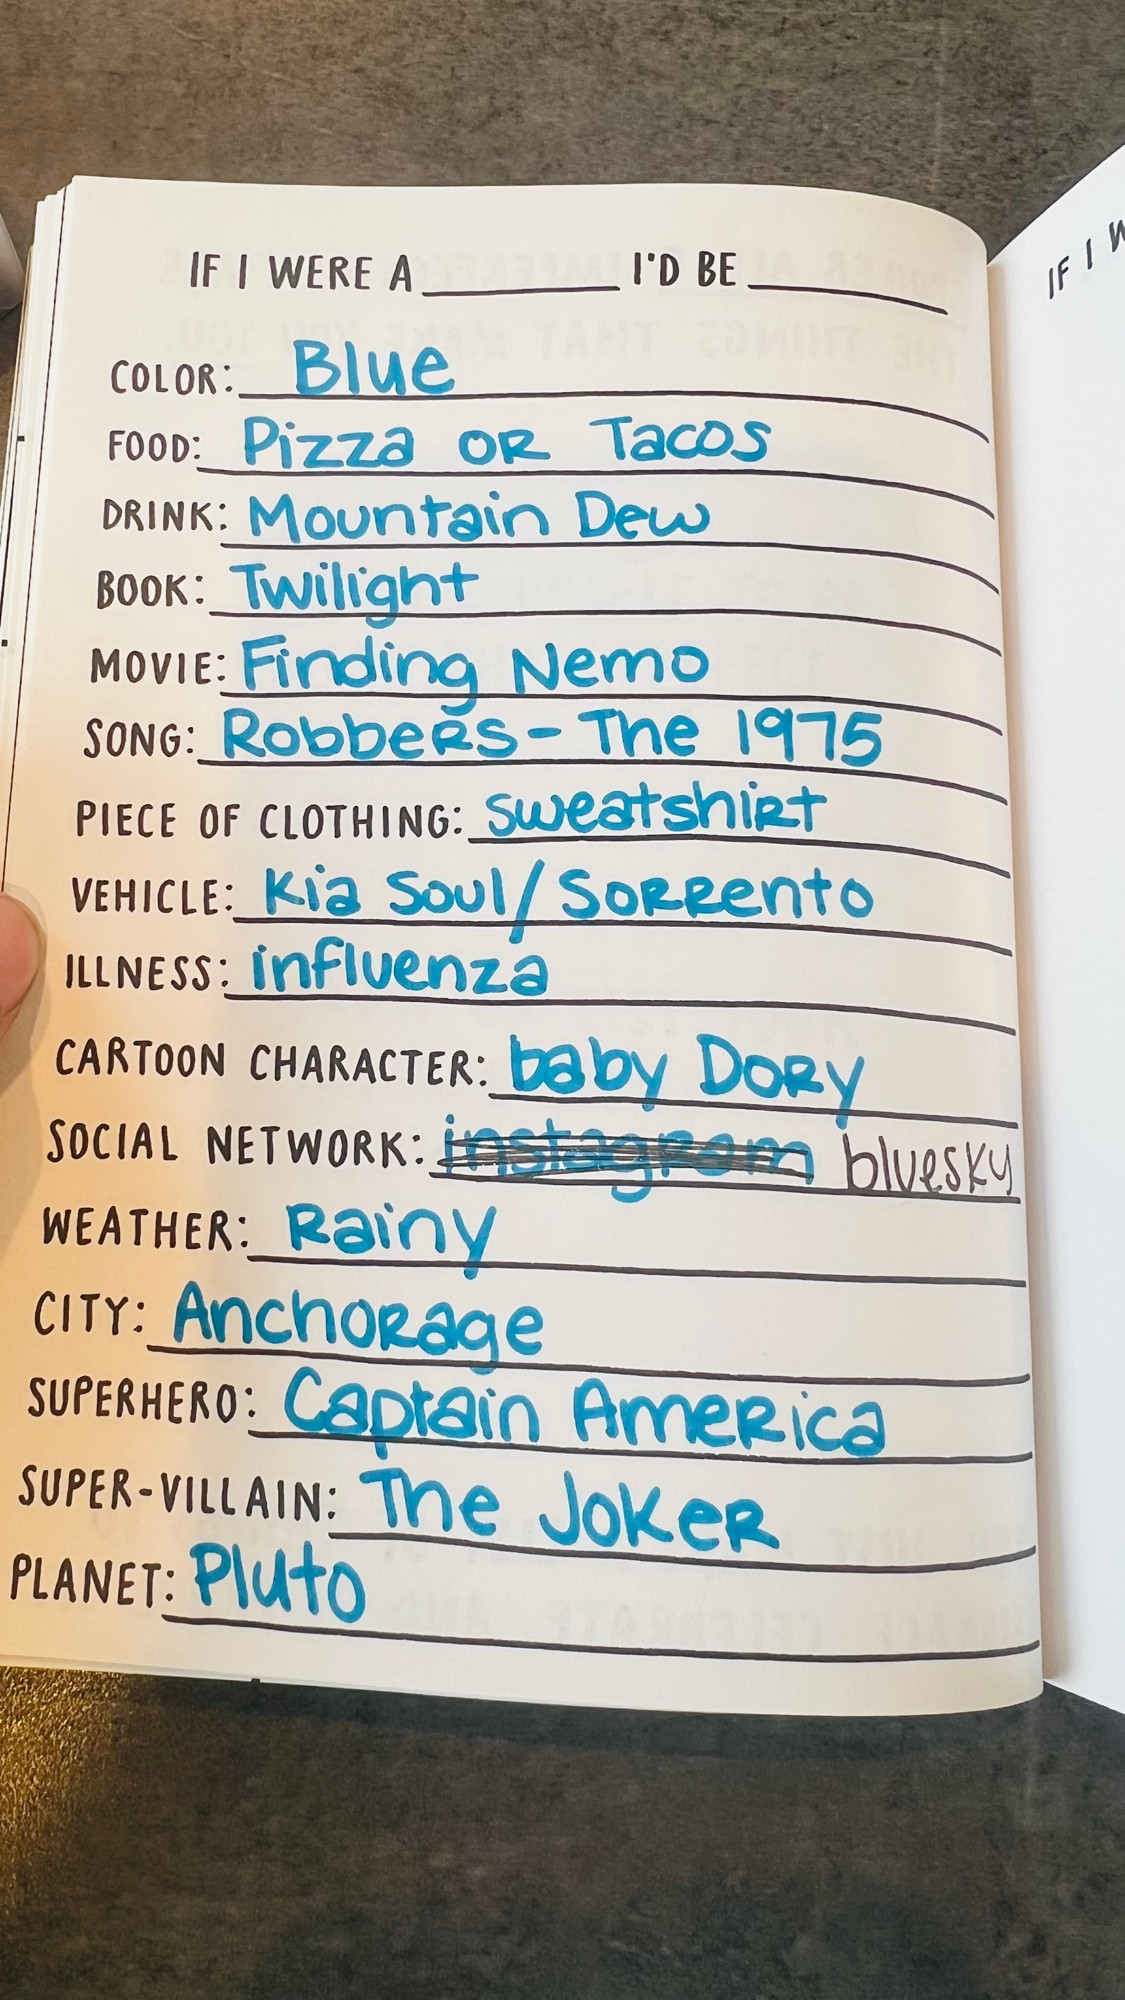 IF I WERE A __________ I'D BE __________
IF I W
COLOR: Blue
FOOD: Pizza OR Tacos
DRINK: Mountain Dew
BOOK: Twilight
MOVIE: Finding Nemo
SONG: Robbers - The 1975
PIECE OF CLOTHING: sweatshirt
VEHICLE: Kia Soul/Sorrento
ILLNESS: influenza
CARTOON CHARACTER: baby Dory
SOCIAL NETWORK: instagram bluesky
WEATHER: Rainy
CITY: Anchorage
SUPERHERO: Captain America
SUPER-VILLAIN: The Joker
PLANET: Pluto